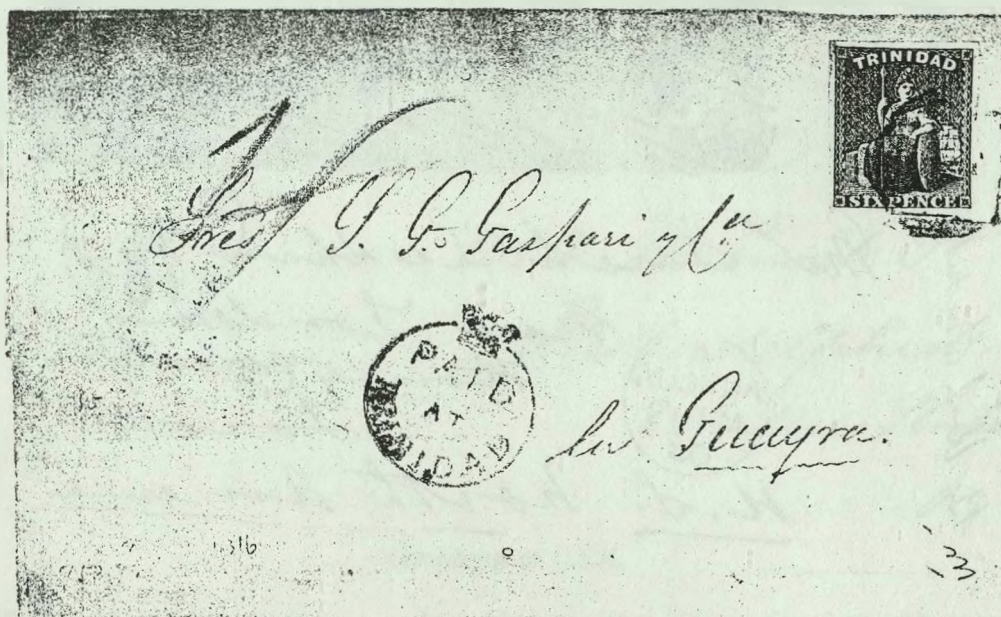 TRINIDAD
SIX PENCE
Sres S. G. Gaspari y Ca
PAID
AT
TRINIDAD
La Guayra.
1316
3